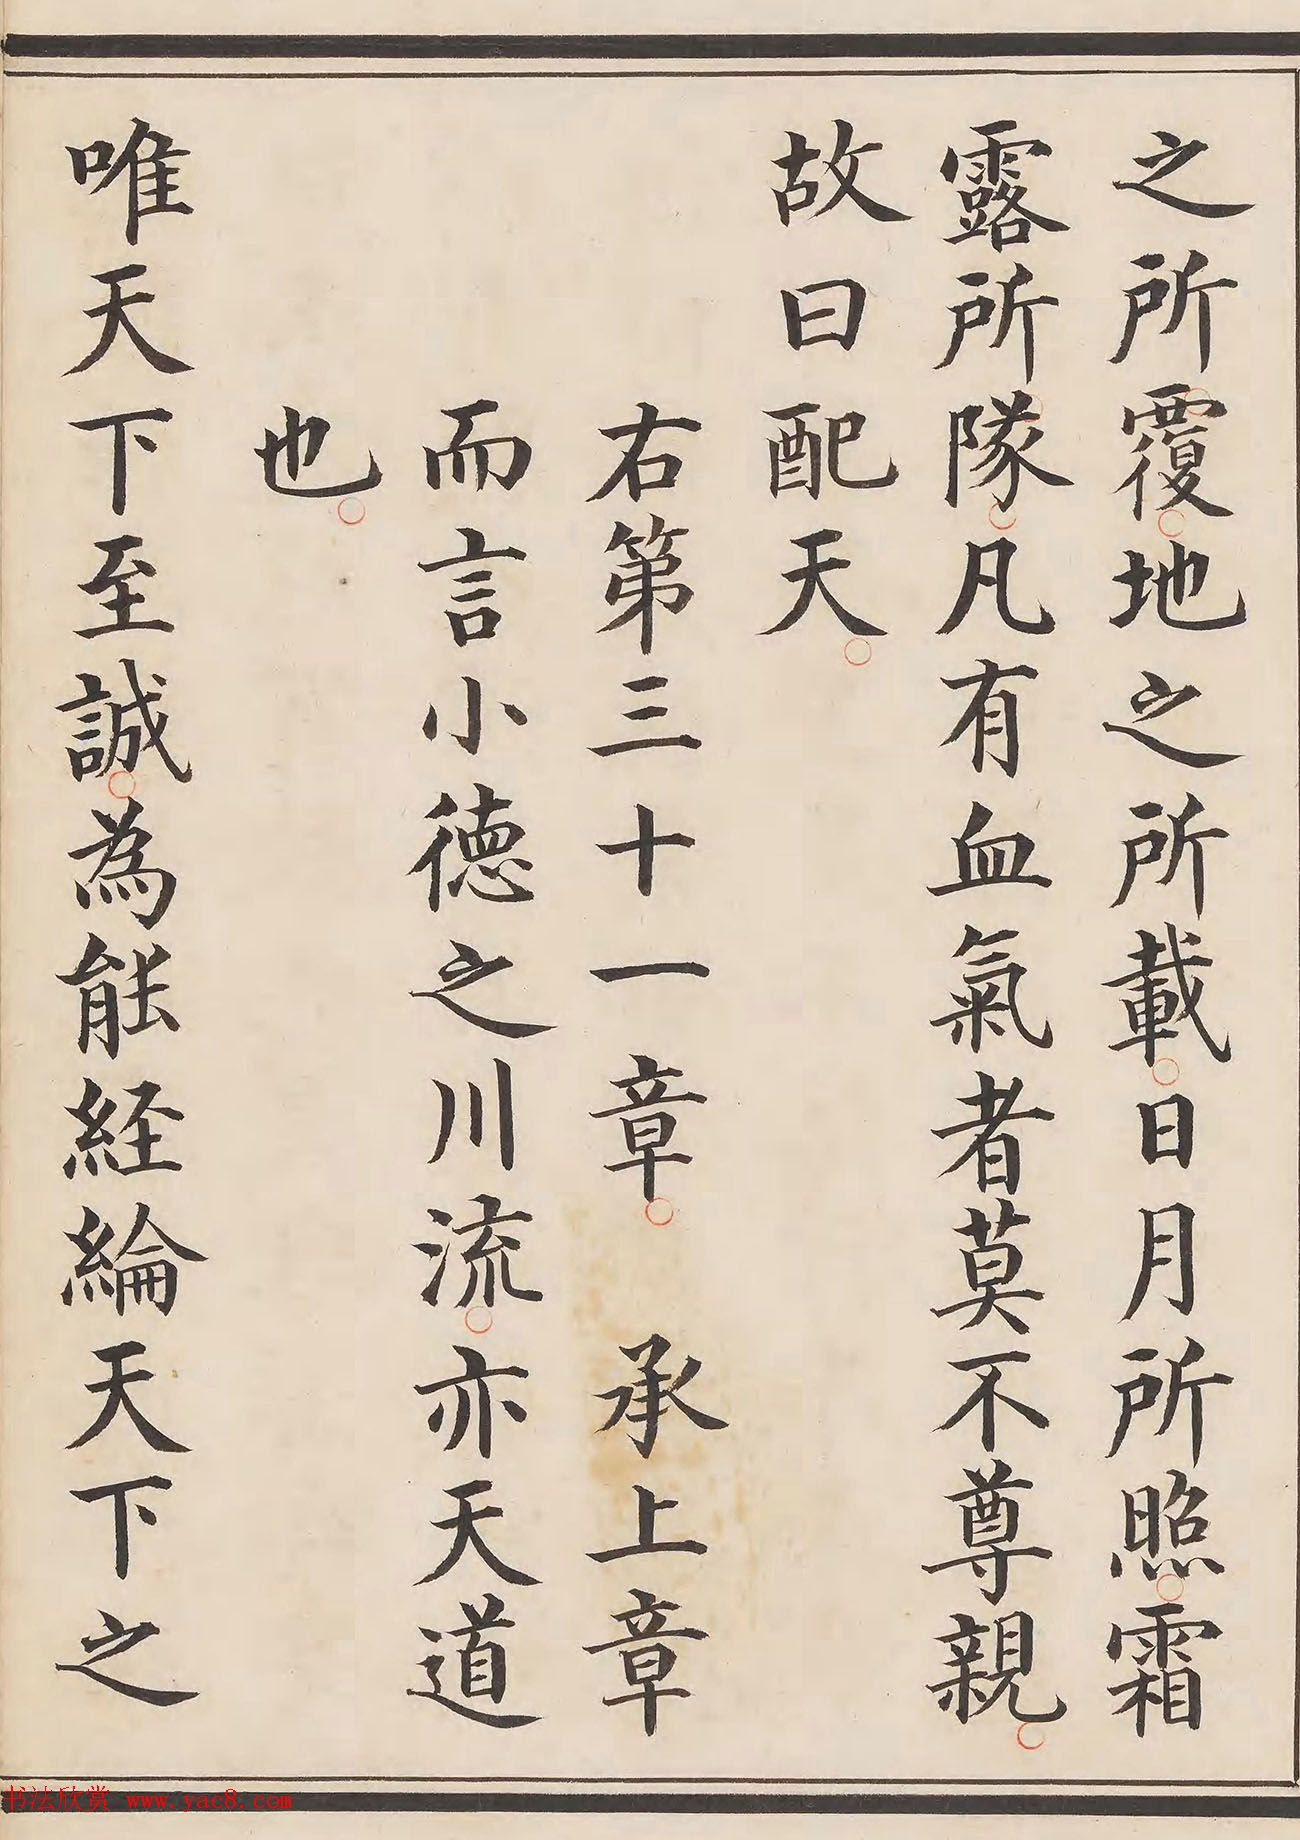 之所覆地之所載日月所照霜
露所隊凡有血氣者莫不尊親
故曰配天
右第三十一章 承上章
而言小德之川流亦天道
也
唯天下至誠為能經綸天下之
书法欣赏 www.yac8.com